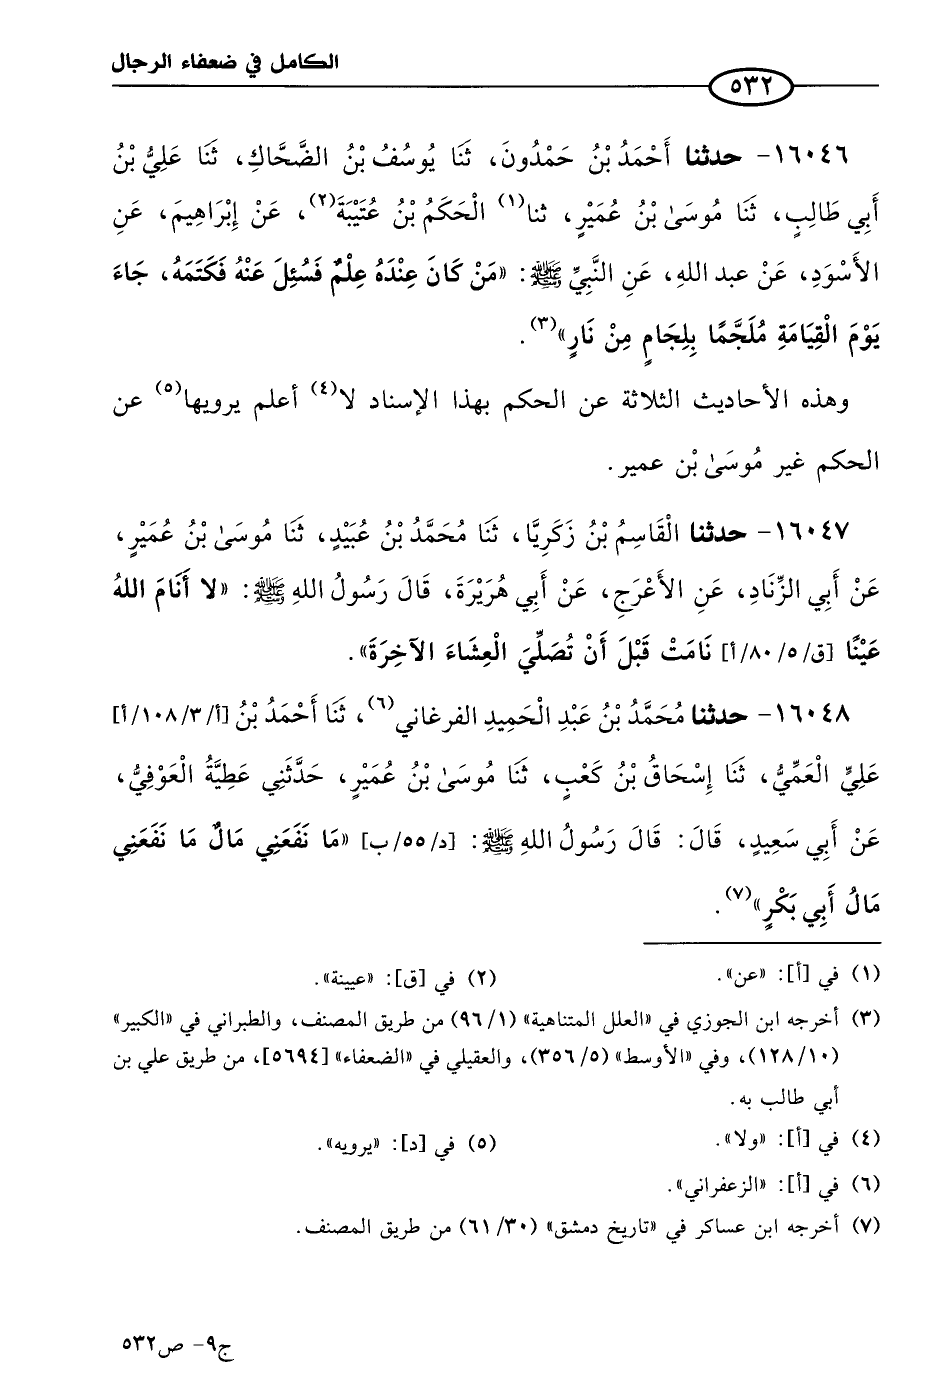 الكامل في ضعفاء الرجال
٥٣٢
١٦٠٤٦- حدثنا أَحْمَدُ بْنُ حَمْدُونَ، ثَنَا يُوسُفُ بْنُ الضَّحَّاكِ، ثَنَا عَلِيُّ بْنُ
أَبِي طَالِبٍ، ثَنَا مُوسَىٰ بْنُ عُمَيْرٍ، ثنا(١) الْحَكَمُ بْنُ عُتَيْبَةَ(٢)، عَنْ إِبْرَاهِيمَ، عَنِ
الأَسْوَدِ، عَنْ عبد الله، عَنِ النَّبِيِّ ﷺ: «مَنْ كَانَ عِنْدَهُ عِلْمٌ فَسُئِلَ عَنْهُ فَكَتَمَهُ، جَاءَ
يَوْمَ الْقِيَامَةِ مُلَجَّمًا بِلِجَامٍ مِنْ نَارٍ»(٣).
وهذه الأحاديث الثلاثة عن الحكم بهذا الإسناد لا(٤) أعلم يرويها(٥) عن
الحكم غير مُوسَىٰ بْن عمير.
١٦٠٤٧- حدثنا الْقَاسِمُ بْنُ زَكَرِيَّا، ثَنَا مُحَمَّدُ بْنُ عُبَيْدٍ، ثَنَا مُوسَىٰ بْنُ عُمَيْرٍ،
عَنْ أَبِي الزِّنَادِ، عَنِ الأَعْرَجِ، عَنْ أَبِي هُرَيْرَةَ، قَالَ رَسُولُ اللهِ ﷺ: «لا أَنَامَ اللهُ
عَيْنًا [ق/٨٠/٥/أ] نَامَتْ قَبْلَ أَنْ تُصَلِّيَ الْعِشَاءَ الآخِرَةَ».
١٦٠٤٨- حدثنا مُحَمَّدُ بْنُ عَبْدِ الْحَمِيدِ الفرغاني(٦)، ثَنَا أَحْمَدُ بْنُ [أ/١٠٨/٣/أ]
عَلِيٍّ الْعَمِّيُّ، ثَنَا إِسْحَاقُ بْنُ كَعْبٍ، ثَنَا مُوسَىٰ بْنُ عُمَيْرٍ، حَدَّثَنِي عَطِيَّةُ الْعَوْفِيُّ،
عَنْ أَبِي سَعِيدٍ، قَالَ: قَالَ رَسُولُ اللهِ ﷺ: [د/٥٥/ب] «مَا نَفَعَنِي مَالٌ مَا نَفَعَنِي
مَالُ أَبِي بَكْرٍ»(٧).
(١) في [أ]: «عن».
(٢) في [ق]: «عيينة».
(٣) أخرجه ابن الجوزي في «العلل المتناهية» (٩٦/١) من طريق المصنف، والطبراني في «الكبير»
(١٢٨/١٠)، وفي «الأوسط» (٣٥٦/٥)، والعقيلي في «الضعفاء» [٥٦٩٤]، من طريق علي بن
أبي طالب به.
(٤) في [أ]: «ولا».
(٥) في [د]: «يرويه».
(٦) في [أ]: «الزعفراني».
(٧) أخرجه ابن عساكر في «تاريخ دمشق» (٦١/٣٠) من طريق المصنف.
ج٩- ص٥٣٢